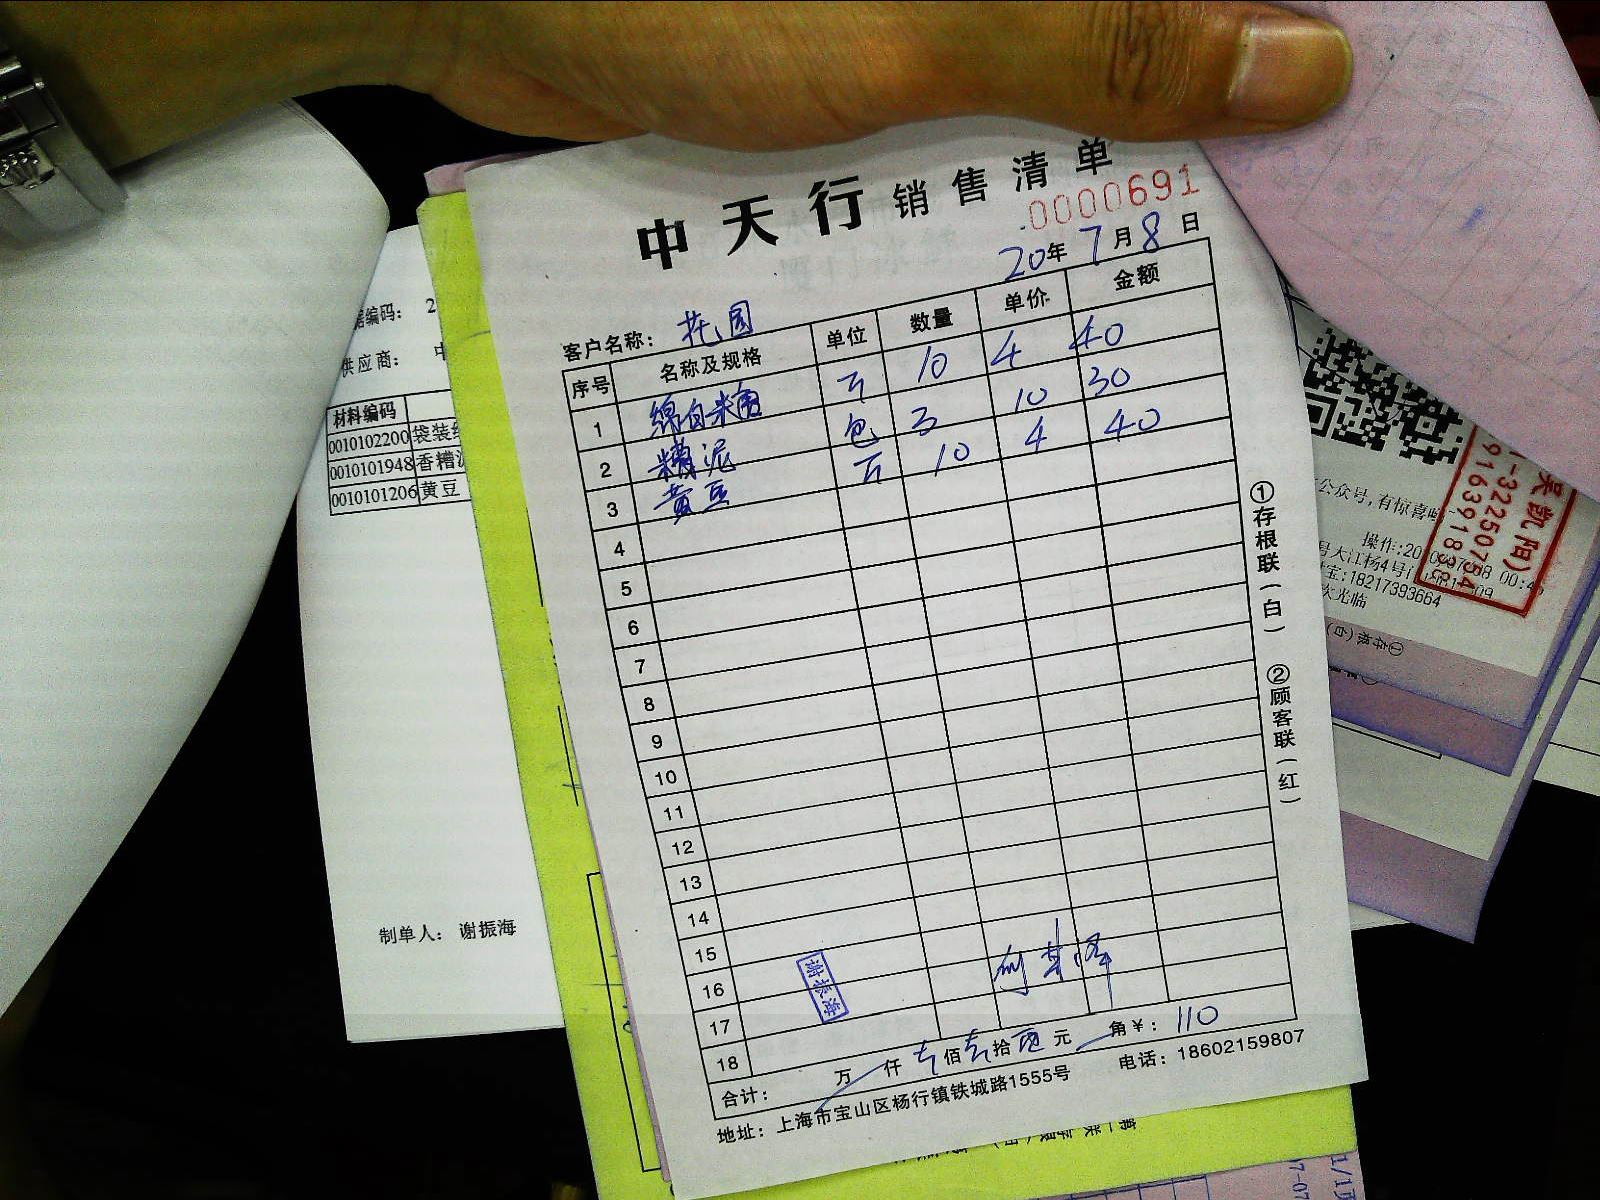 中天行 销售清单
0000691
20年7月8日
客户名称： 花园
序号 名称及规格 单位 数量 单价 金额
1 绵白糖 斤 10 4 40
2 糟泥 包 3 10 30
3 黄豆 斤 10 4 40
4
5
6
7
8
9
10
11
12
13
14
15
16
17
18
谢振海
合计： 万 仟 佰 拾 元 角 ¥： 110
地址：上海市宝山区杨行镇铁城路1555号 电话：18602159807
①存根联（白） ②顾客联（红）
编码： 2
供应商： 中
材料编码
0010102200 袋装
0010101948 香糟
0010101206 黄豆
制单人： 谢振海
公众号,有惊喜
操作:20
号大江杨4号
宝:18217393664
次光临
吴凯阳)
-32250754
916391838
①存根(白)